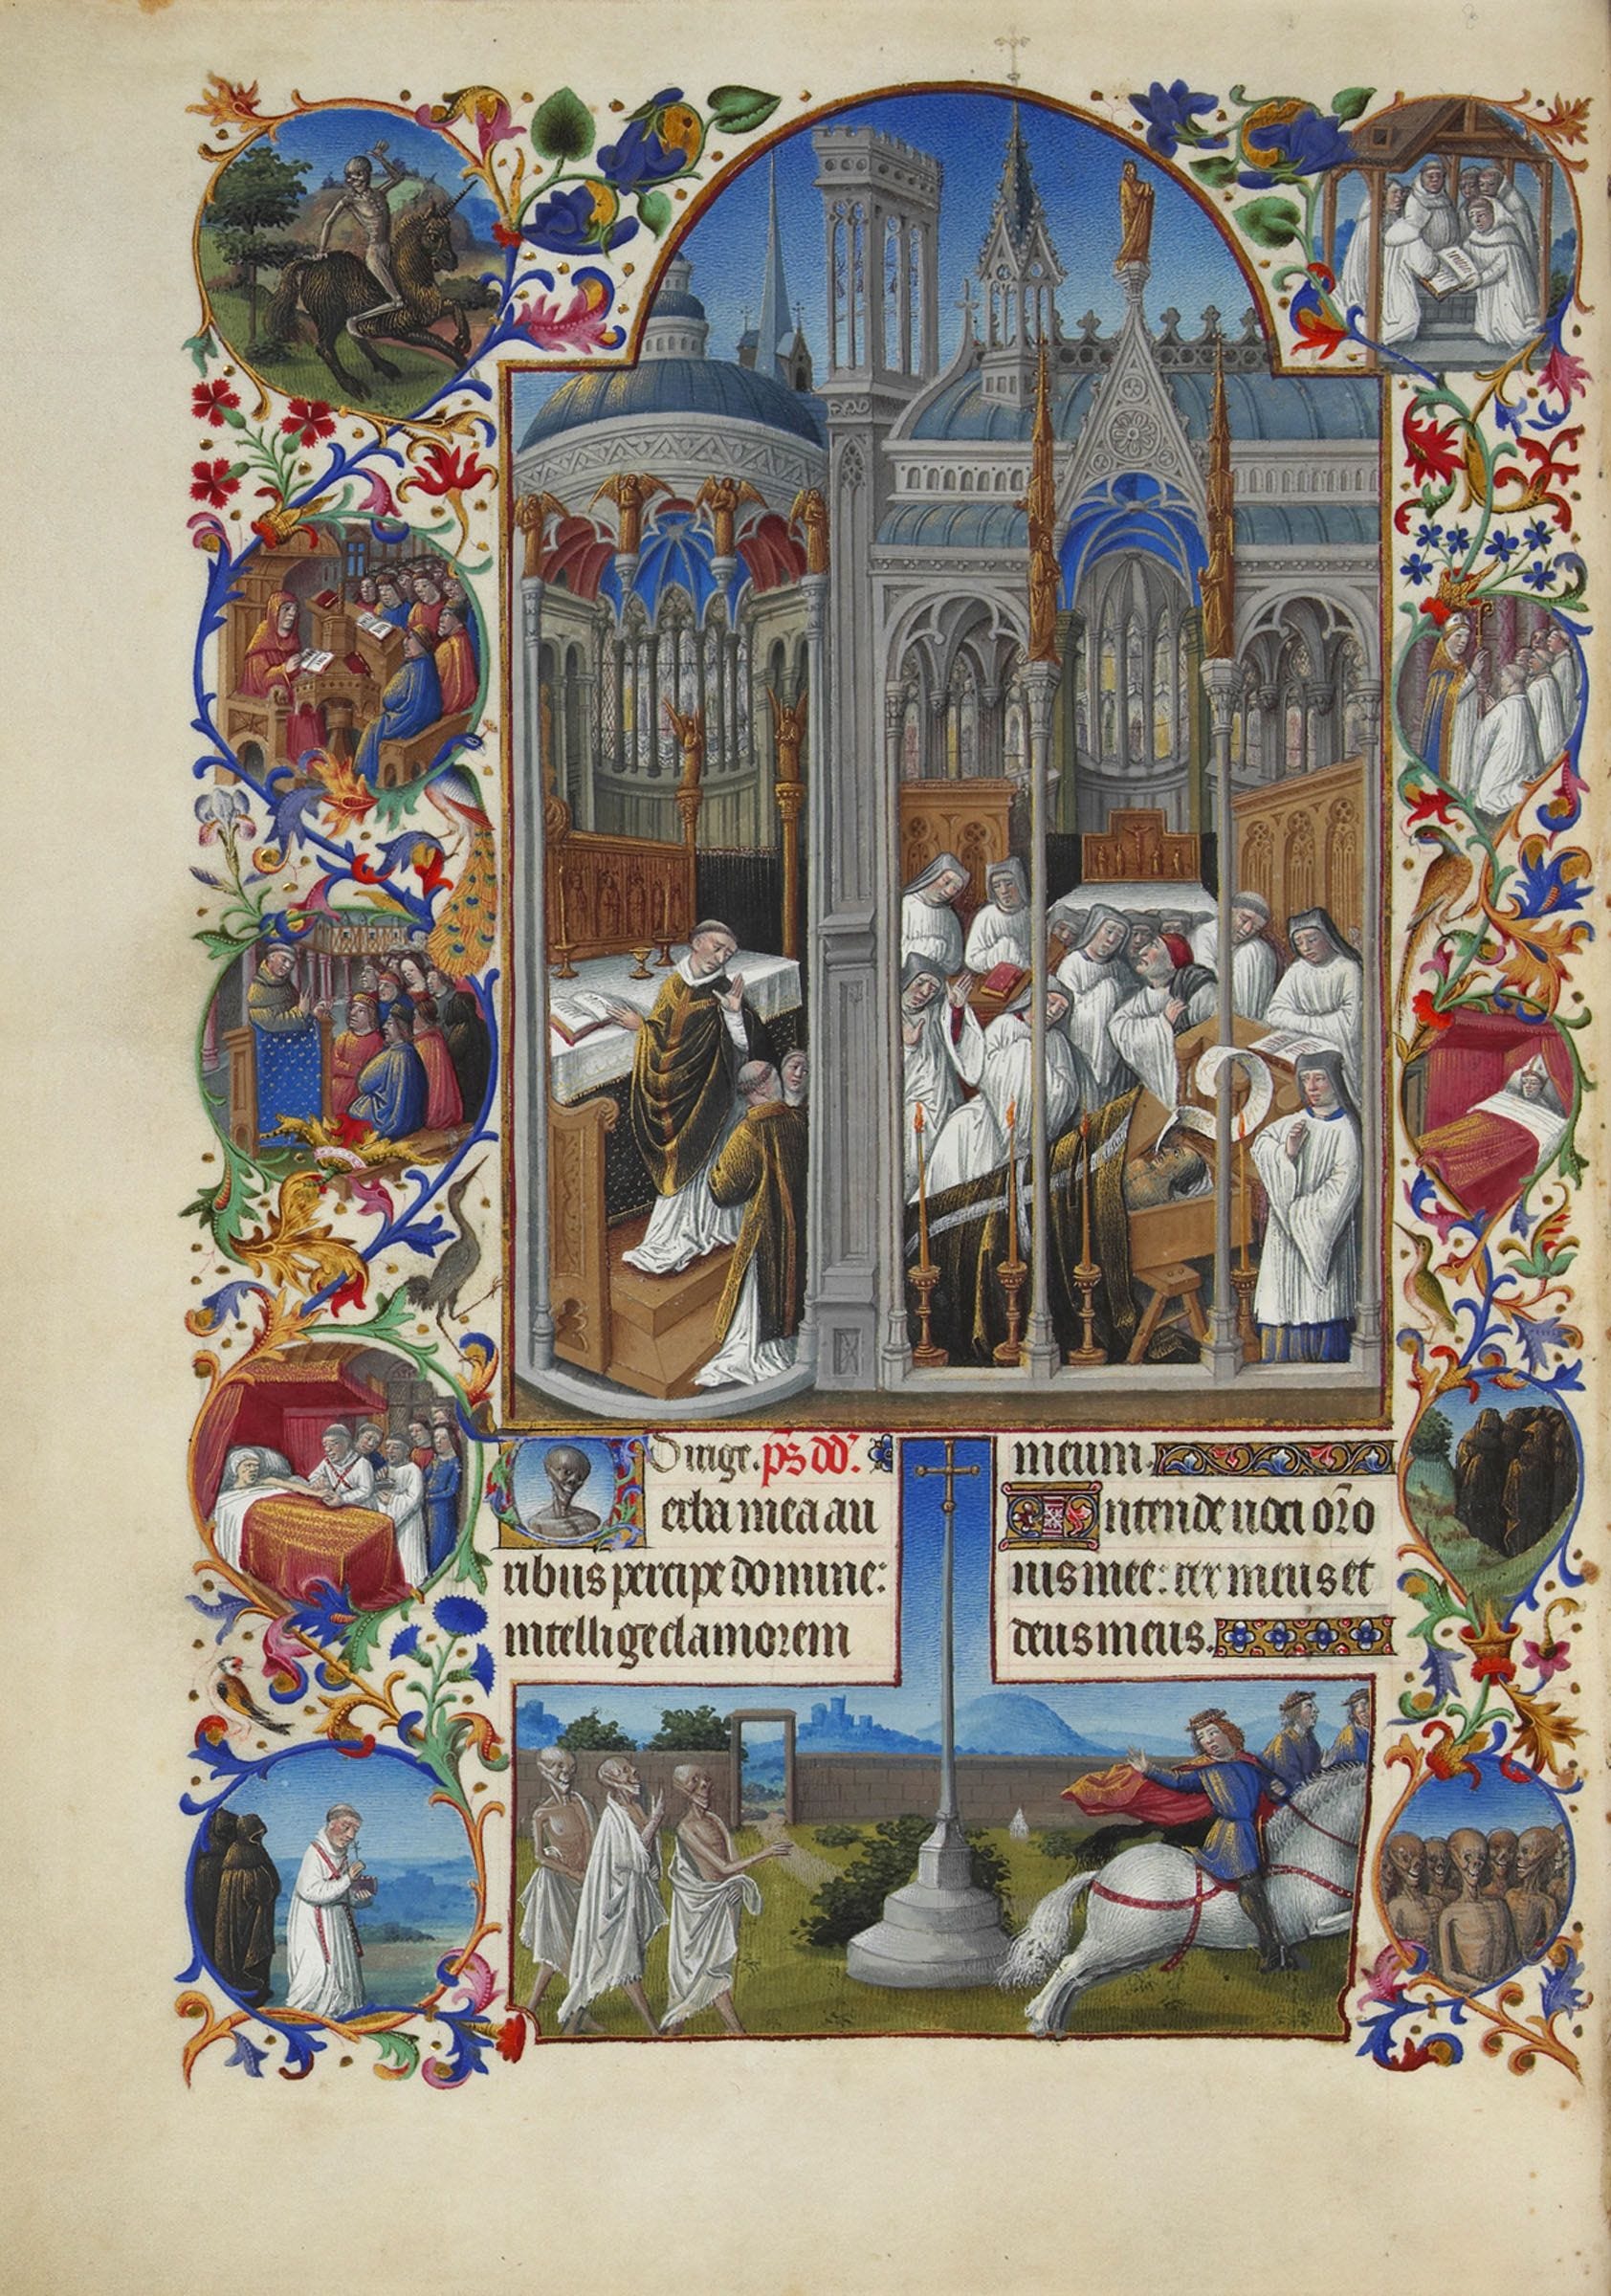 Dirige. ps̄ dd̄.
Verba mea au
ribus percipe domine:
intellige clamorem
meum.
Intende uoci or̄o
nis mee: rex meus et
deus meus.